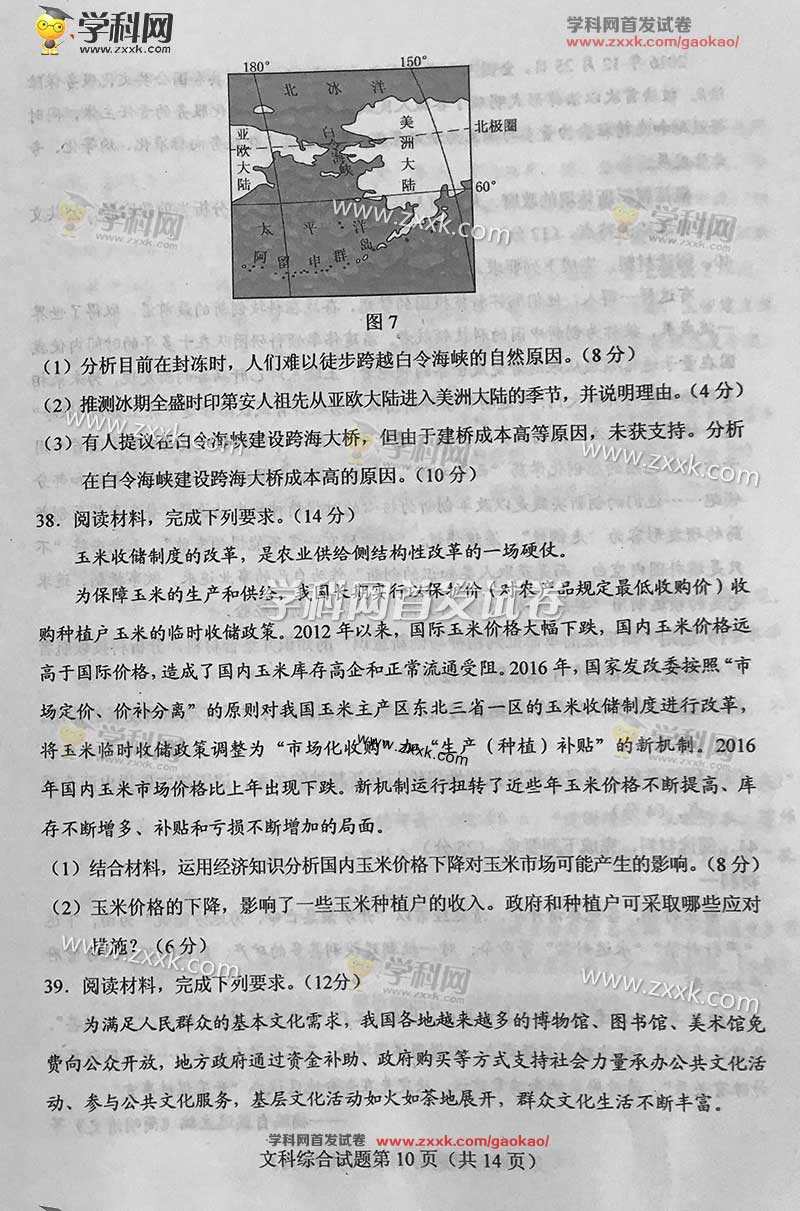 学科网
www.zxxk.com
学科网首发试卷
www.zxxk.com/gaokao/
180°
150°
北冰洋
亚欧大陆
白令海峡
美洲大陆
北极圈
60°
太平洋
阿留申群岛
学科网
www.zxxk.com
www.zxxk.com
学科网
www.zxxk.com
图 7
(1)分析目前在封冻时，人们难以徒步跨越白令海峡的自然原因。(8 分)
(2)推测冰期全盛时印第安人祖先从亚欧大陆进入美洲大陆的季节，并说明理由。(4 分)
(3)有人提议在白令海峡建设跨海大桥，但由于建桥成本高等原因，未获支持。分析
在白令海峡建设跨海大桥成本高的原因。(10 分)
www.zxxk.com
www.zxxk.com
38．阅读材料，完成下列要求。(14 分)
玉米收储制度的改革，是农业供给侧结构性改革的一场硬仗。
为保障玉米的生产和供给，我国长期实行以保护价（对农产品规定最低收购价）收
学科网首发试卷
购种植户玉米的临时收储政策。2012 年以来，国际玉米价格大幅下跌，国内玉米价格远
高于国际价格，造成了国内玉米库存高企和正常流通受阻。2016 年，国家发改委按照“市
场定价、价补分离”的原则对我国玉米主产区东北三省一区的玉米收储制度进行改革，
将玉米临时收储政策调整为“市场化收购”加“生产（种植）补贴”的新机制。2016
www.zxxk.com
学科网
www.zxxk.com
学科网
www.zxxk.com
年国内玉米市场价格比上年出现下跌。新机制运行扭转了近些年玉米价格不断提高、库
存不断增多、补贴和亏损不断增加的局面。
(1)结合材料，运用经济知识分析国内玉米价格下降对玉米市场可能产生的影响。(8 分)
(2)玉米价格的下降，影响了一些玉米种植户的收入。政府和种植户可采取哪些应对
措施？(6 分)
www.zxxk.com
学科网
www.zxxk.com
www.zxxk.com
39．阅读材料，完成下列要求。(12分)
为满足人民群众的基本文化需求，我国各地越来越多的博物馆、图书馆、美术馆免
费向公众开放，地方政府通过资金补助、政府购买等方式支持社会力量承办公共文化活
动、参与公共文化服务，基层文化活动如火如荼地展开，群众文化生活不断丰富。
学科网首发试卷 www.zxxk.com/gaokao/
文科综合试题第 10 页（共 14 页）